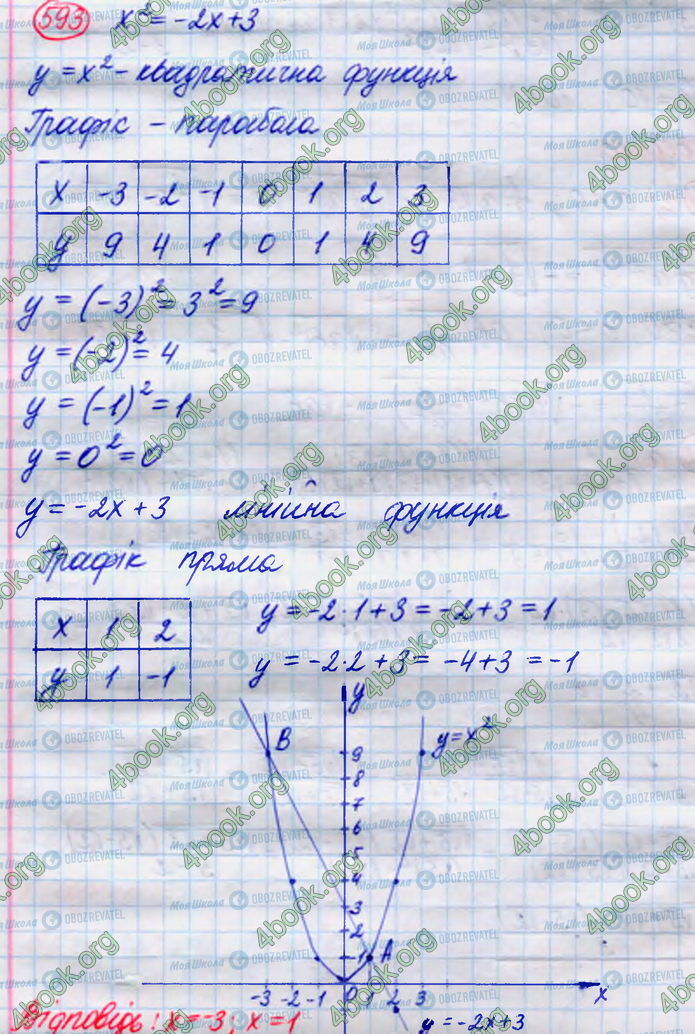 593 x² = -2x+3
y = x² - квадратична функція
Графік - парабола
x -3 -2 -1 0 1 2 3
y 9 4 1 0 1 4 9
y = (-3)² = 3² = 9
y = (-2)² = 4
y = (-1)² = 1
y = 0² = 0
y = -2x + 3 лінійна функція
Графік пряма
x 1 2
y 1 -1
y = -2·1+3 = -2+3 = 1
y = -2·2+3 = -4+3 = -1
y
B
y = x²
9
8
7
6
5
4
3
2
1 A
-3 -2 -1 0 1 2 3 x
y = -2x+3
Відповідь: x = -3; x = 1
4book.org
Моя Школа
OBOZREVATEL